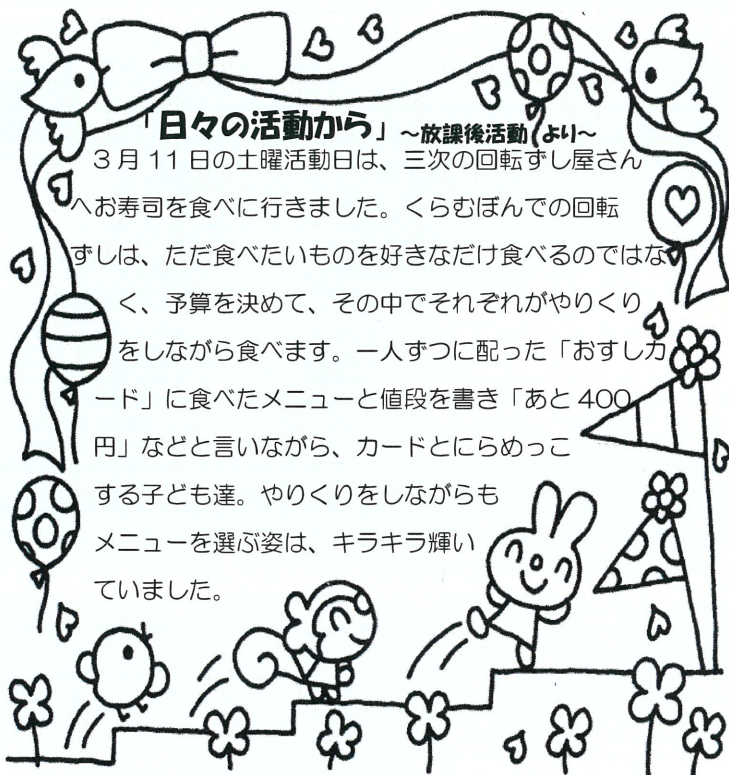 「日々の活動から」～放課後活動より～
３月 11 日の土曜活動日は、三次の回転ずし屋さん
へお寿司を食べに行きました。くらむぼんでの回転
ずしは、ただ食べたいものを好きなだけ食べるのではな
く、予算を決めて、その中でそれぞれがやりくり
をしながら食べます。一人ずつに配った「おすしカ
ード」に食べたメニューと値段を書き「あと 400
円」などと言いながら、カードとにらめっこ
する子ども達。やりくりをしながらも
メニューを選ぶ姿は、キラキラ輝い
ていました。